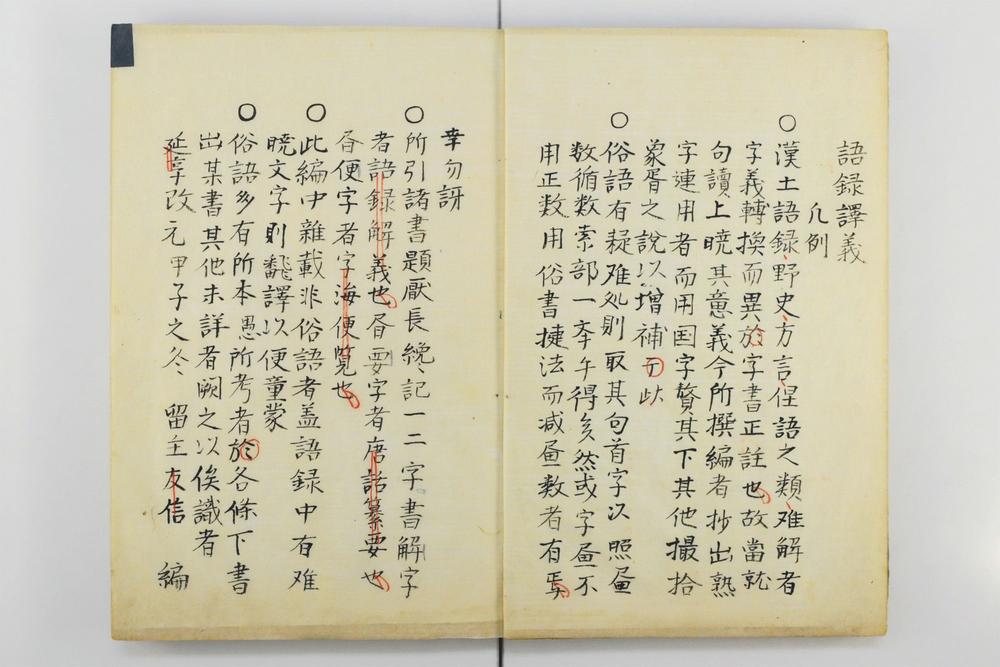 語録譯義
凡例
○漢土語録野史方言俚語之類难解者
字義轉換而異於字書正註也故當就
句讀上曉其意義今所撰編者抄出熟
字連用者而用国字贅其下其他撮拾
蒙胥之說以増補于此
○俗語有疑难処則取其句首字以照画
数循数索部一索乍得矣然或字画不
用正数用俗書捷法而减画数者有焉
幸勿訝
○所引諸書題厭長纔記一二字書解字
者語録解義也胥要字者唐話纂要也
胥便字者字海便覧也
○此編中雜載非俗語者盖語録中有难
曉文字則飜譯以便童蒙
○俗語多有所本愚所考者於各條下書
出某書其他未詳者闕之以俟識者
延享改元甲子之冬 留守友信 編